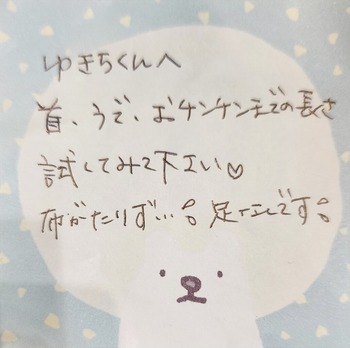 ゆきちくんへ
首、うで、おチンチンまでの長さ
試してみて下さい♡
布がたりず…。足なしです。